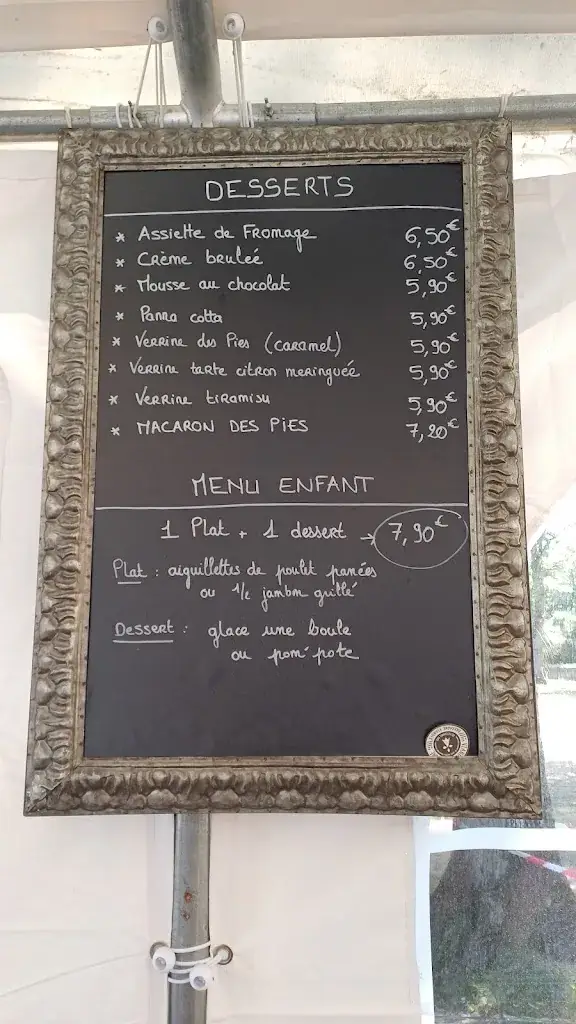 DESSERTS
* Assiette de Fromage 6,50€
* Crème brulée 6,50€
* Mousse au chocolat 5,90€
* Panna cotta 5,90€
* Verrine des Pies (caramel) 5,90€
* Verrine tarte citron meringuée 5,90€
* Verrine tiramisu 5,90€
* MACARON DES PIES 7,20€
MENU ENFANT
1 Plat + 1 dessert → 7,90€
Plat : aiguillettes de poulet panées
ou 1/2 jambon grillé
Dessert : glace une boule
ou pom'pote